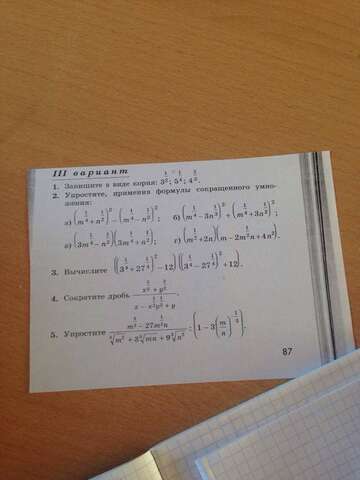 III вариант
1. Запишите в виде корня: 3^(1/2); 5^(1/4); 4^(3/2).
2. Упростите, применяя формулы сокращенного умножения:
а) (m^(1/4)+n^(1/2))^2 − (m^(1/4)−n^(1/2))^2; б) (m^(1/4)−3n^(1/2))^2 + (m^(1/4)+3n^(1/2))^2;
в) (3m^(1/4)−n^(1/2))(3m^(1/4)+n^(1/2)); г) (m^(1/2)+2n)(m−2m^(1/2)n+4n^2).
3. Вычислите ((3^(1/4)+27^(1/4))^2−12)((3^(1/4)−27^(1/4))^2+12).
4. Сократите дробь (x^(1/2)+y^(1/2))/(x−x^(1/2)y^(1/2)+y).
5. Упростите
87